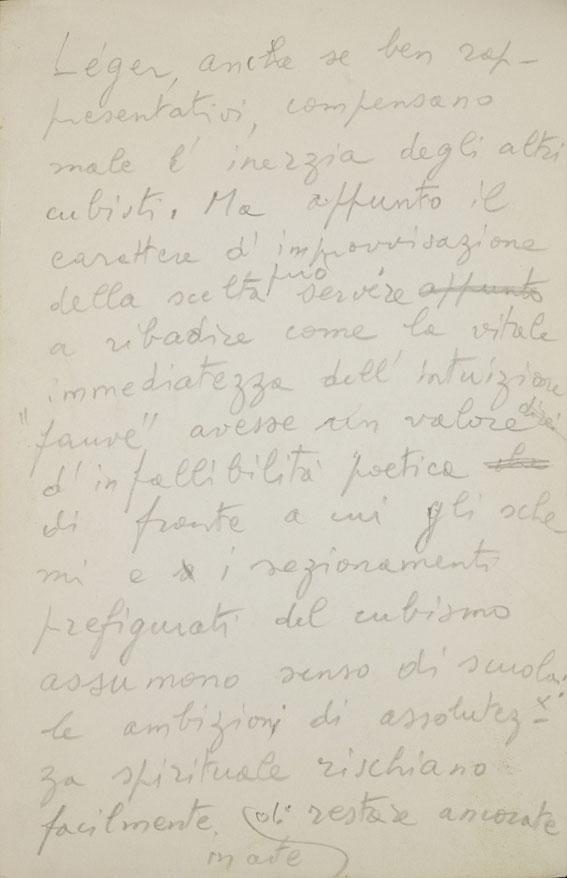 Léger, anche se ben rap-
presentativi, compensano
male l'inerzia degli altri
cubisti. Ma appunto il
carattere d'improvvisazione
può
della scelta servire appunto
a ribadire come la vitale
immediatezza dell'intuizione
"fauve" avesse un valore direi
d'infallibilità poetica che
di fronte a cui gli sche
mi e i sezionamenti
prefigurati del cubismo
assumono senso di scuola:
le ambizioni di assolutez-
za spirituale rischiano
facilmente di restare ancorate